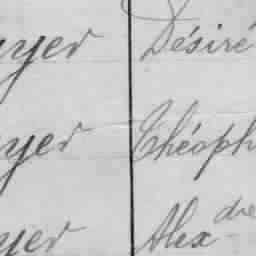 yer Désiré
yer Théoph
yer Alexdre